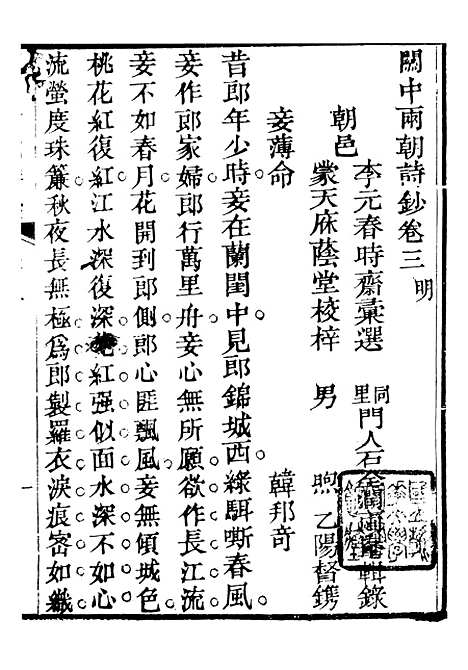 關中兩朝詩鈔卷三 明
朝邑
李元春時齋彙選
蒙天庥蔭堂校梓
同里 門人石 輯錄
男 煦乙陽督鎸
妾薄命 韓邦奇
昔郎年少時。妾在蘭閨中。見郎錦城西。綠駬嘶春風。
妾作郎家婦。郎行萬里舟。妾心無所願。欲作長江流。
妾不如春月。花開到郎側。郎心匪飄風。妾無傾城色。
桃花紅復紅。江水深復深。花紅强似面。水深不如心。
流螢度珠簾。秋夜長無極。爲郎製羅衣。淚痕密如織。
一